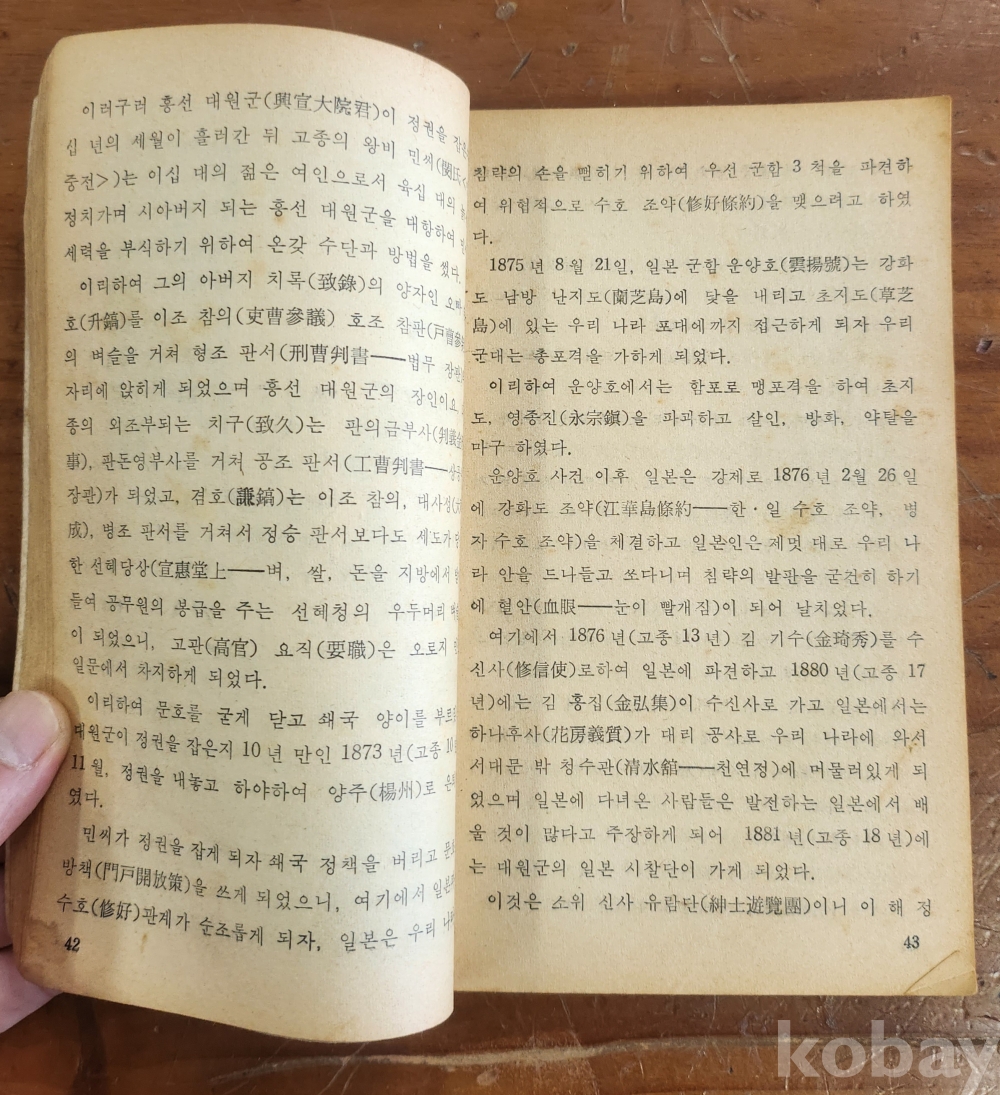 이러구러 흥선 대원군(興宣大院君)이 정권을 잡은
십 년의 세월이 흘러간 뒤 고종의 왕비 민씨(閔氏<
중전>)는 이십 대의 젊은 여인으로서 육십 대의
정치가며 시아버지 되는 흥선 대원군을 대항하여
세력을 부식하기 위하여 온갖 수단과 방법을 썼다.
이리하여 그의 아버지 치록(致錄)의 양자인 오빠
호(升鎬)를 이조 참의(吏曹參議) 호조 참판(戶曹參
의 벼슬을 거쳐 형조 판서(刑曹判書──법무 장관
자리에 앉히게 되었으며 흥선 대원군의 장인이요,
종의 외조부되는 치구(致久)는 판의금부사(判義金
事), 판돈영부사를 거쳐 공조 판서(工曹判書──상공
장관)가 되었고, 겸호(謙鎬)는 이조 참의, 대사성(
成), 병조 판서를 거쳐서 정승 판서보다도 세도가
한 선혜당상(宣惠堂上──벼, 쌀, 돈을 지방에서
들여 공무원의 봉급을 주는 선혜청의 우두머리
이 되었으니, 고관(高官) 요직(要職)은 오로지
일문에서 차지하게 되었다.
이리하여 문호를 굳게 닫고 쇄국 양이를 부르
대원군이 정권을 잡은지 10년 만인 1873년(고종 10
11월, 정권을 내놓고 하야하여 양주(楊州)로
였다.
민씨가 정권을 잡게 되자 쇄국 정책을 버리고
방책(門戶開放策)을 쓰게 되었으니, 여기에서 일본
수호(修好)관계가 순조롭게 되자, 일본은 우리
42
침략의 손을 뻗히기 위하여 우선 군함 3 척을 파견하
여 위협적으로 수호 조약(修好條約)을 맺으려고 하였
다.
1875년 8월 21일, 일본 군함 운양호(雲揚號)는 강화
도 남방 난지도(蘭芝島)에 닻을 내리고 초지도(草芝
島)에 있는 우리 나라 포대에까지 접근하게 되자 우리
군대는 총포격을 가하게 되었다.
이리하여 운양호에서는 함포로 맹포격을 하여 초지
도, 영종진(永宗鎭)을 파괴하고 살인, 방화, 약탈을
마구 하였다.
운양호 사건 이후 일본은 강제로 1876년 2월 26일
에 강화도 조약(江華島條約──한·일 수호 조약, 병
자 수호 조약)을 체결하고 일본인은 제멋 대로 우리 나
라 안을 드나들고 쏘다니며 침략의 발판을 굳건히 하기
에 혈안(血眼──눈이 빨개짐)이 되어 날치었다.
여기에서 1876년(고종 13년) 김 기수(金琦秀)를 수
신사(修信使)로하여 일본에 파견하고 1880년(고종 17
년)에는 김 홍집(金弘集)이 수신사로 가고 일본에서는
하나후사(花房義質)가 대리 공사로 우리 나라에 와서
서대문 밖 청수관(清水舘──천연정)에 머물러있게 되
었으며 일본에 다녀온 사람들은 발전하는 일본에서 배
울 것이 많다고 주장하게 되어 1881년(고종 18년)에
는 대원군의 일본 시찰단이 가게 되었다.
이것은 소위 신사 유람단(紳士遊覽團)이니 이 해 정
43
kobay